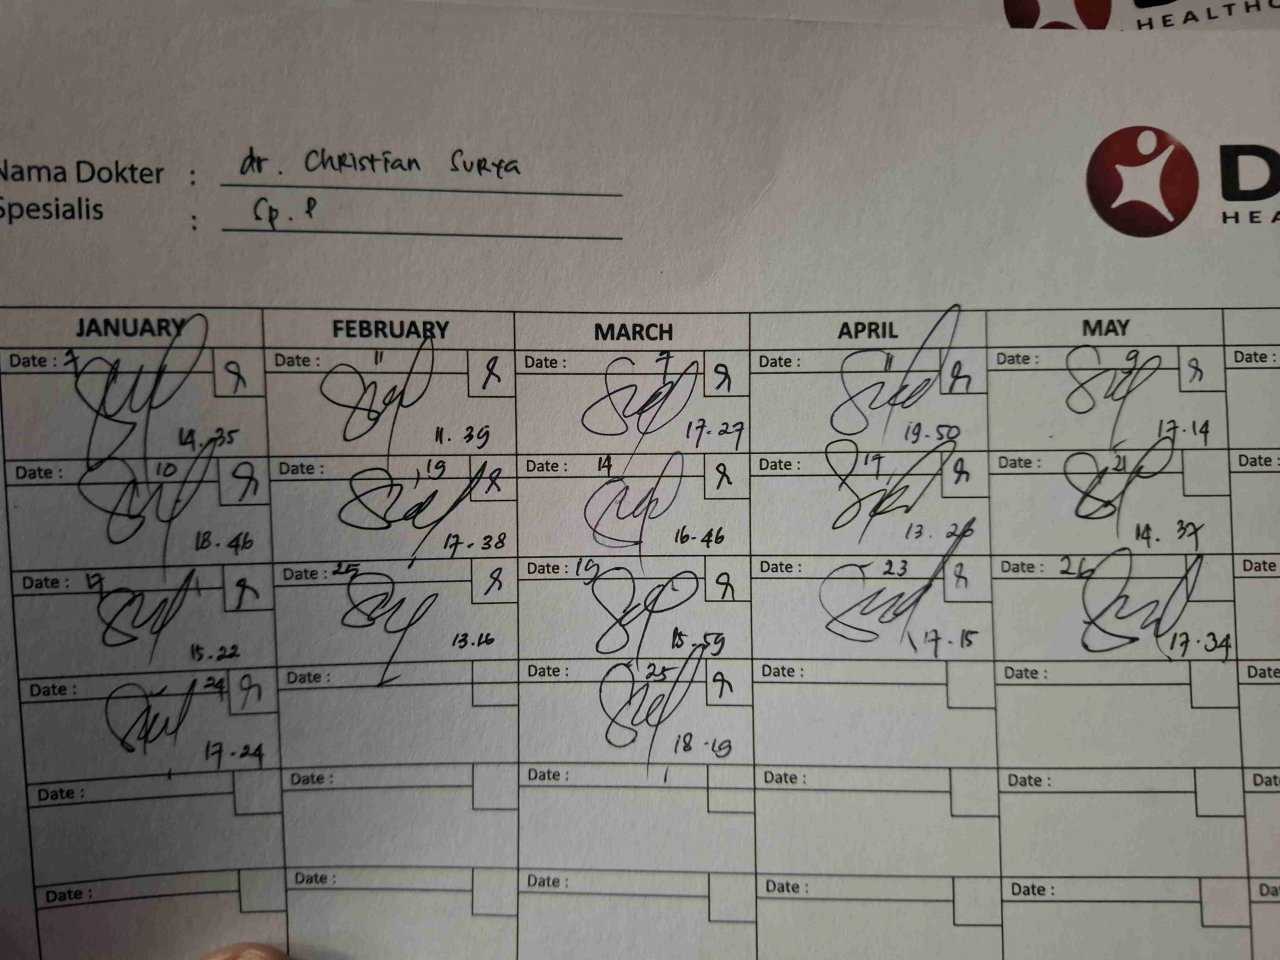 HEALTHC
Nama Dokter : dr. Christian Surya
Spesialis : Sp. P
D
HEA
JANUARY FEBRUARY MARCH APRIL MAY
Date : 7 Date : 11 Date : 7 Date : 11 Date : 9 Date :
14.35 11.39 17.27 19.50 17.14
Date : 10 Date : 19 Date : 14 Date : 17 Date : 21 Date :
18.46 17.38 16.46 13.26 14.37
Date : Date : 25 Date : 19 Date : 23 Date : 26 Date
15.22 13.16 15.59 17.15 17.34
Date : 24 Date : Date : 25 Date : Date : Date
17.24 18.19
Date : Date : Date : Date : Date : Dat
Date : Date : Date : Date : Date : Da